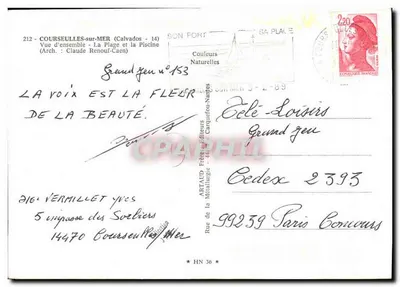 212 - COURSEULLES-sur-MER (Calvados - 14)
Vue d'ensemble - La Plage et la Piscine
(Arch. : Claude Renouf-Caen)
SON PORT
SA PLAGE
Couleurs
Naturelles
2,20
Grand Jeu n° 153
-2-89
LA VOIX EST LA FLEUR
DE LA BEAUTÉ.
ARTAUD Frères, Éditeurs
Rue de la Métallurgie - Carquefou-Nantes
Télé-Loisirs
Grand Jeu
Cedex 2393
99239 Paris Concours
VERMILLET Yves
5 impasse des Sorbiers
14470 Courseulles/Mer
Cartorum
* HN 36 *